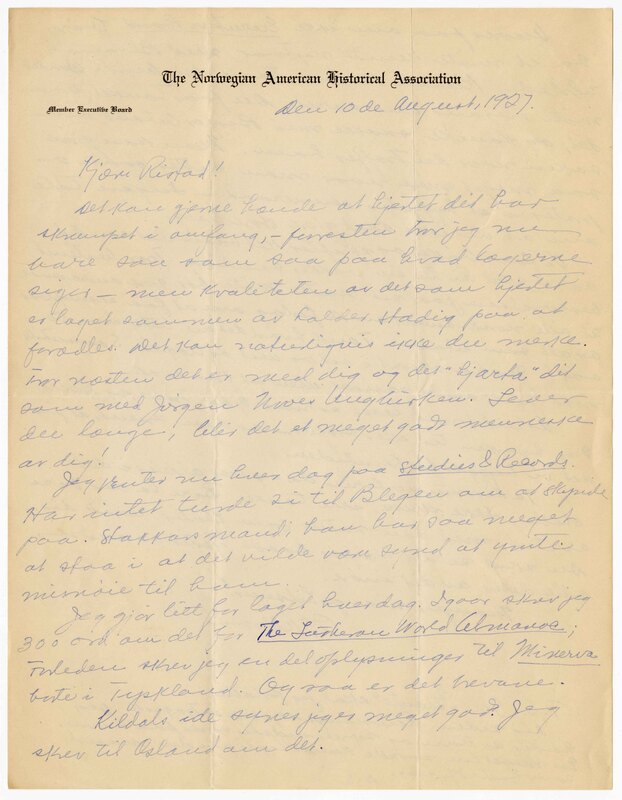 The Norwegian American Historical Association
Member Executive Board
Den 10 de August, 1927.
Kjære Ristad!
Det kan gjerne hænde at hjertet dit har
skrumpet i omfang, – forresten tror jeg nu
bare saa som saa paa hvad lægerne
siger – men kvaliteten av det som hjertet
er laget sammen av holder stadig paa at
forædles. Det kan naturligvis ikke du merke.
Tror næsten det er med dig og det "hjarta" dit
som med Jørgen Moes Ungbirken. Lever
du længe, blir det et meget godt menneske
av dig!
Jeg venter nu hver dag paa Studies & Records.
Har intet turde si til Blegen om at skynde
paa. Stakkars mand; han har saa meget
at staa i at det vilde være synd at ymte
misnøie til ham.
Jeg gjør litt for laget hver dag. Igaar skrev jeg
300 ord om det for The Lutheran World Almanac;
forleden skrev jeg en del oplysninger til Minerva
borte i Tyskland. Og saa er det brevene.
Kildals ide synes jeg er meget god. Jeg
skrev til Osland om det.